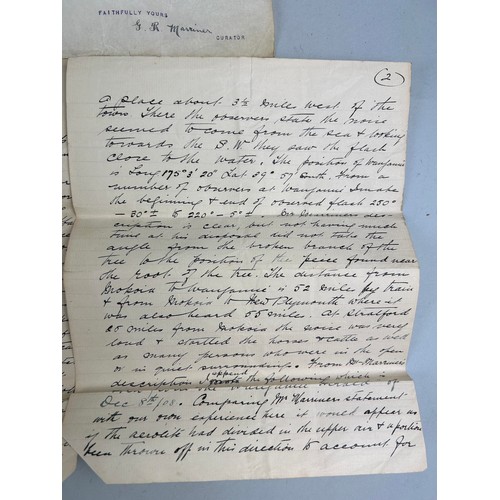 FAITHFULLY YOURS
G. R. Marriner
CURATOR
(2)
a place about 3½ mile west of the
town There the observers state the noise
seemed to come from the sea & looking
towards the S.W. they saw the flash
close to the water. The position of Wanganui
is Long 175° 3' 20" Lat 39° 57' South. From a
number of observers at Wanganui I make
the beginning & end of observed flash 250°
— 30° ± to 220° — 5° ±. Mr Marriners des-
cription is clear, but not having much
time at his disposal did not take the
angle from the broken branch of the
tree to the position of the piece found near
the root of the tree. The distance from
Mokoia to Wanganui is 52 mile by train
& from Mokoia to New Plymouth where it
was also heard 55 miles. At Stratford
25 miles from Mokoia the noise was very
loud & startled the horses & cattle as well
as many persons who were in the open
or in quiet surroundings. From Mr Marriners
description I append the following which is
the Wanganui Herald of
Dec 8th/08. Comparing Mr Marriner statement
with our own experience here it would appear as
if the aerolite had divided in the upper air & a portion
been thrown off in this direction to account for